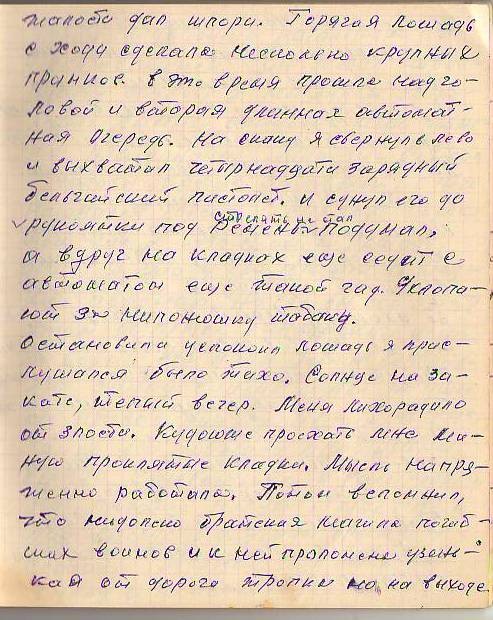 жалости дал шпори. Горячая лошадь
с ходу сделала несколько крупных
прижков. в это время прошла над го-
ловой и вторая длинная автомат-
ная очередь. На скаку я свернул в лево
и выхватил четырнадцати зарядный
бельгийский пистолет. и сунул его до
стрелять не стал
рукоятки под Ремень Подумал,
а вдруг на кладках еще сидит с
автоматом еще такой гад. Ухлопа-
ют за
остановил и успокоил лошадь я прис-
лушался было тихо. Солнце на за-
кате, теплый вечер. Меня лихорадило
от злости. Куда же проехать мне ми-
ную проклятые кладки. Мысль напря-
женно работала. Потом вспомнил,
что недалеко братская могила погиб-
ших воинов и к ней проложена узень-
кая от дороги тропка но на выходе